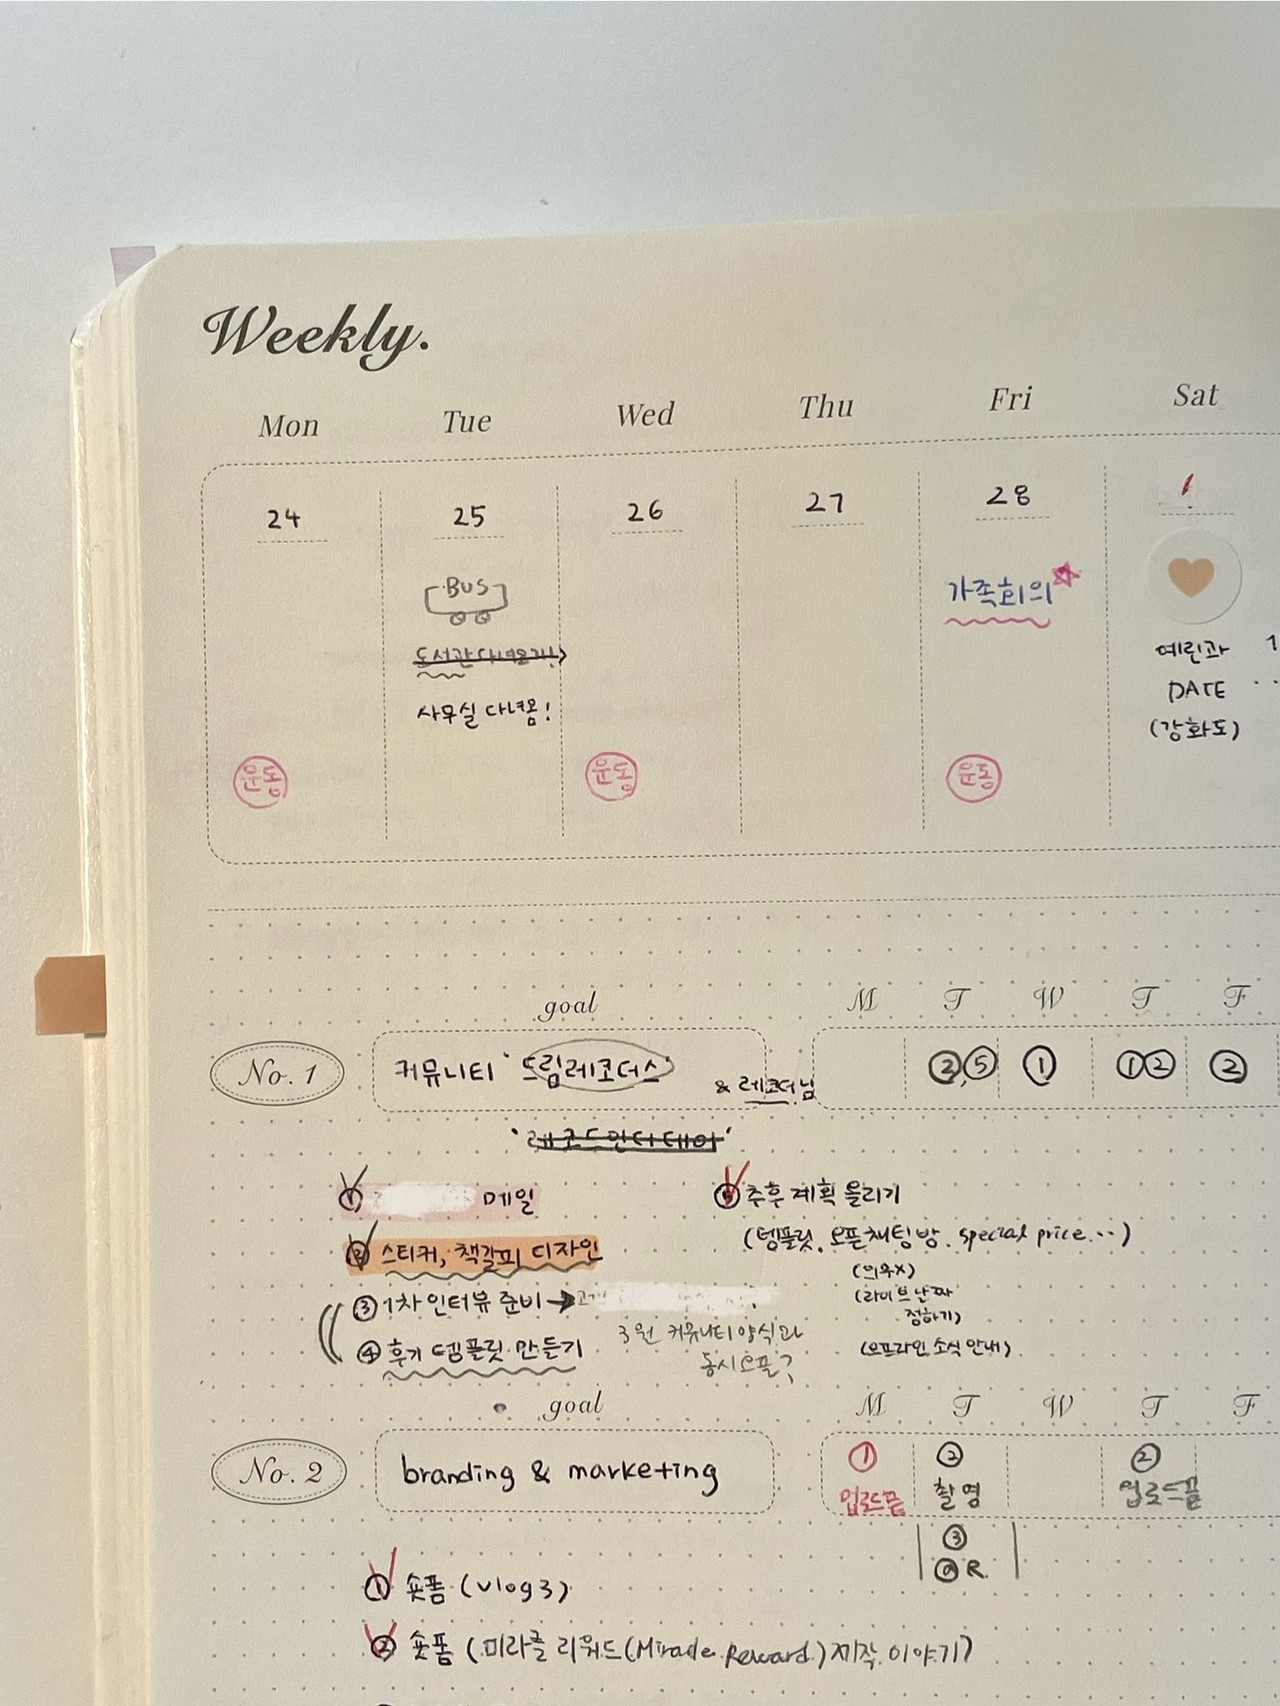 Weekly.
Mon Tue Wed Thu Fri Sat
24 25 26 27 28 1
BUS
가족회의
도서관 다녀오기!
사무실 다녀옴!
예린과
DATE
(강화도)
운동 운동 운동
goal M T W T F
No. 1 커뮤니티 '드림레코더스' & 레코더님 ②,⑤ ① ①② ②
'레코드인더데이'
① 메일
② 스티커, 책갈피 디자인
③ 1차 인터뷰 준비 →
④ 후기 템플릿 만들기
3월 커뮤니티 양식과
동시오픈?
⑤ 추후 계획 올리기
(템플릿, 오픈채팅방, special price...)
(의무x)
(라이브 날짜
정하기)
(오프라인 소식 안내)
goal M T W T F
No. 2 branding & marketing ① ② ②
업로드끝 촬영 업로드끝
③
R
① 숏폼 (vlog3)
② 숏폼 (미라클 리워드(Miracle Reward) 제작 이야기)